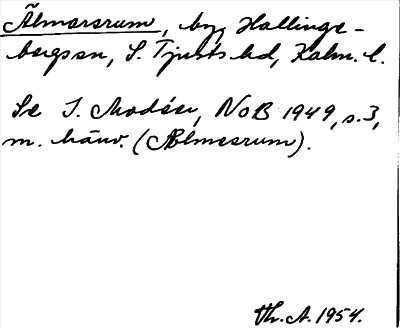 Älmarsrum, by, Hallinge-
bergs sn, S. Tjusts hd, Kalm. l.
Se I. Modéer, NoB 1949, s. 3,
m. hänv. (Ælmesrum).
Th. A. 1954.